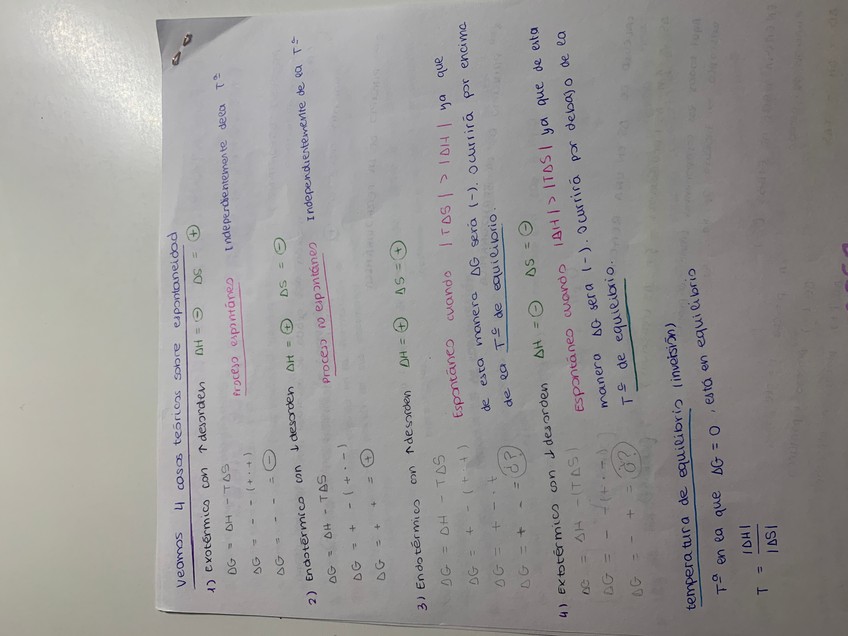 Veamos 4 casos teóricos sobre espontaneidad
1) Exotérmico con ↑desorden ΔH = ⊖ ΔS = ⊕
ΔG = ΔH - TΔS Proceso espontáneo Independientemente de la Tª
ΔG = - - (+ · +)
ΔG = - - = ⊖
2) Endotérmico con ↓desorden ΔH = ⊕ ΔS = ⊖
ΔG = ΔH - TΔS Proceso no espontáneo Independientemente de la Tª
ΔG = + - (+ · -)
ΔG = + + = ⊕
3) Endotérmico con ↑desorden ΔH = ⊕ ΔS = ⊕
ΔG = ΔH - TΔS Espontáneo cuando |TΔS| > |ΔH| ya que
ΔG = + - (+ · +) de esta manera ΔG será (-). Ocurrirá por encima
ΔG = + - · + de la Tª de equilibrio.
ΔG = + - = ¿?
4) Extotérmico con ↓desorden ΔH = ⊖ ΔS = ⊖
ΔG = ΔH - (TΔS) Espontáneo cuando |ΔH| > |TΔS| ya que de esta
ΔG = - - (+ · -) manera ΔG será (-). Ocurrirá por debajo de la
ΔG = - + = ¿? Tª de equilibrio.
temperatura de equilibrio (inversión)
Tª en la que ΔG = 0, está en equilibrio
T = |ΔH|
|ΔS|